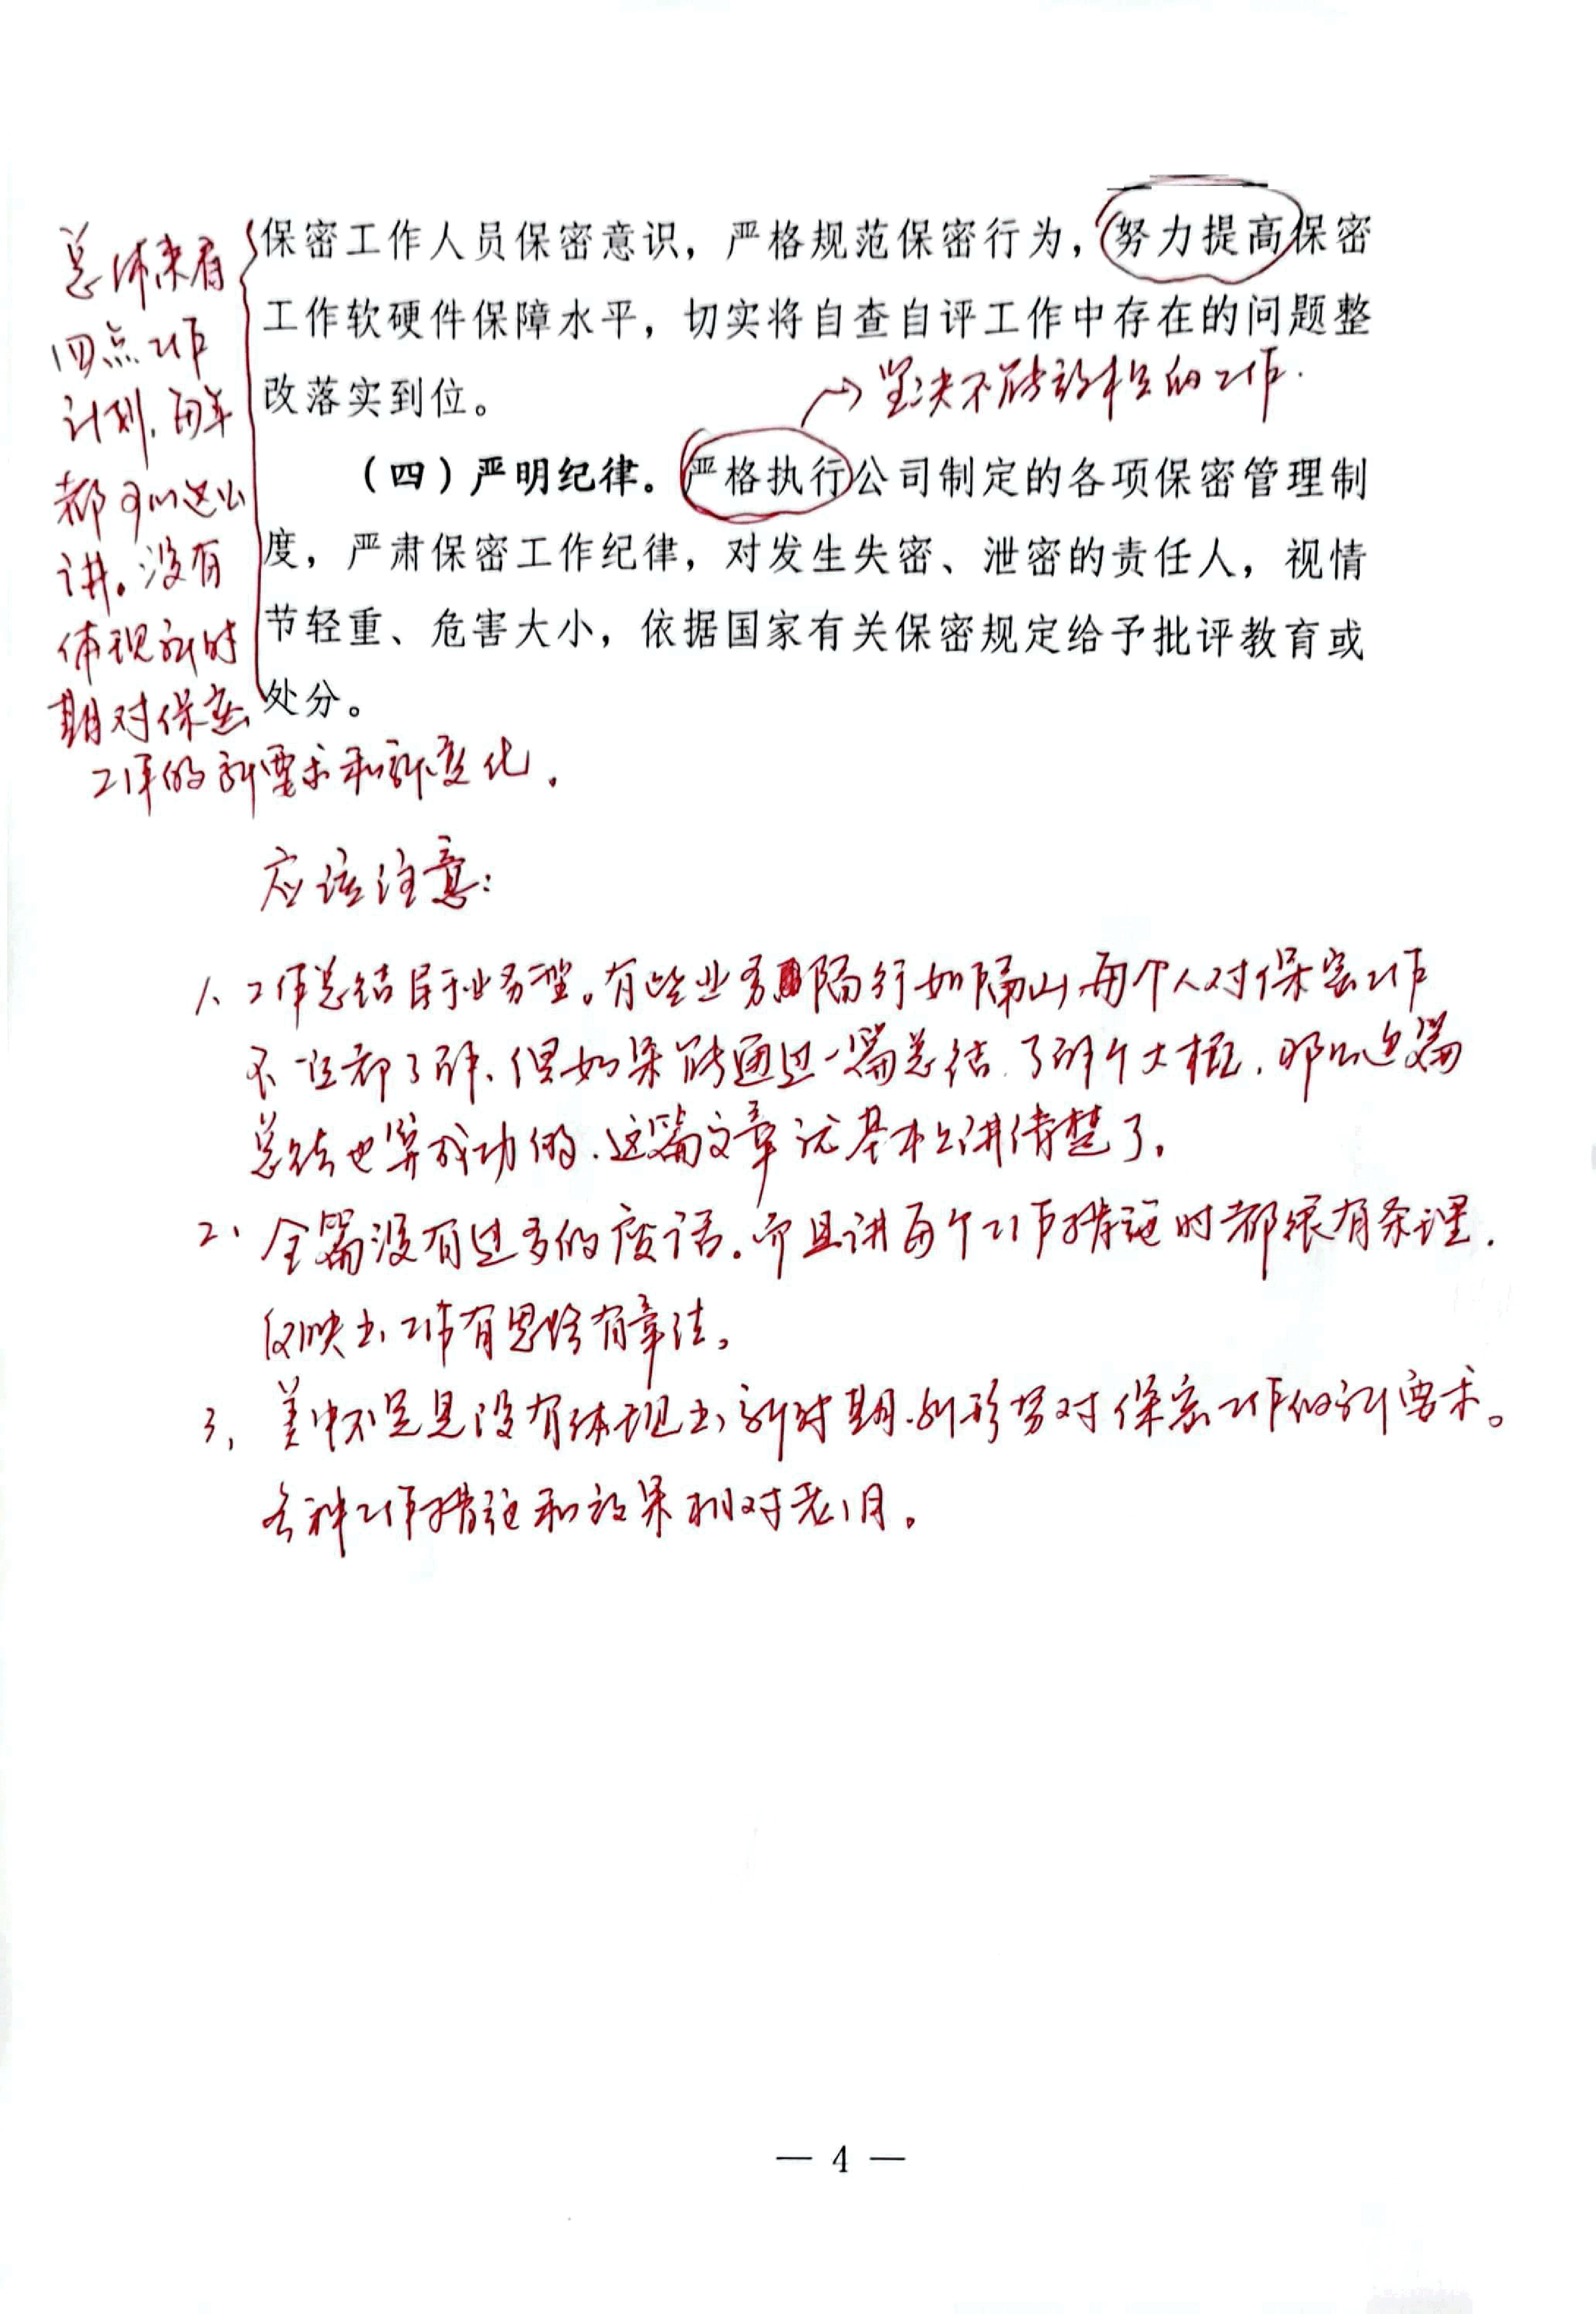 保密工作人员保密意识，严格规范保密行为，努力提高保密
工作软硬件保障水平，切实将自查自评工作中存在的问题整
改落实到位。
→坚决不能放松的工作.
（四）严明纪律。严格执行公司制定的各项保密管理制
度，严肃保密工作纪律，对发生失密、泄密的责任人，视情
节轻重、危害大小，依据国家有关保密规定给予批评教育或
处分。
总体来看
四点工作
计划，每年
都可以这么
讲。没有
体现新时
期对保密
工作的新要求和新变化。
应该注意：
1、工作总结居于业务型。有些业务隔行如隔山，每个人对保密工作
不一定都了解、但如果能通过一篇总结，了解个大概，那么这篇
总结也算成功的。这篇文章说基本上讲清楚了。
2、全篇没有过多的废话。而且讲每个工作措施时都很有条理.
反映出工作有思路有章法。
3、美中不足是没有体现出新时期、新形势对保密工作的新要求。
各种工作措施和效果相对老旧。
— 4 —